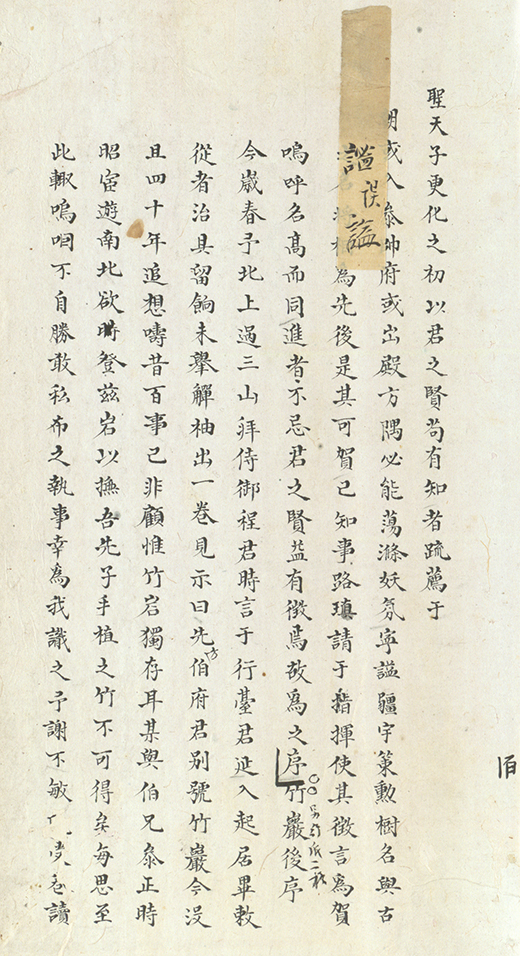 聖天子更化之初以君之賢苟有知者疏薦于
朝或入叅帥府或出殿方隅必能蕩滌妖氛寧謐疆宇策勲樹名與古
謚誤謐
為先後是其可賀已知事路瑱請于揮使其徵言為賀
嗚呼名髙而同進者不忌君之賢益有徵焉故為之序竹巖後序
另行低二格
今歲春予北上過三山拜侍御程君時言于行臺君延入起居畢敕
從者治具留餉未舉觶袖出一巻見示曰先伯府君别號竹巖今没
且四十年追想疇昔百事已非顧惟竹岩獨存耳某與伯兄叅正時
昭宦遊南北欲時登兹岩以撫吾先子手植之竹不可得矣每思至
此輙嗚咽不自勝敢私布之執事幸為我識之予謝不敏受巻讀